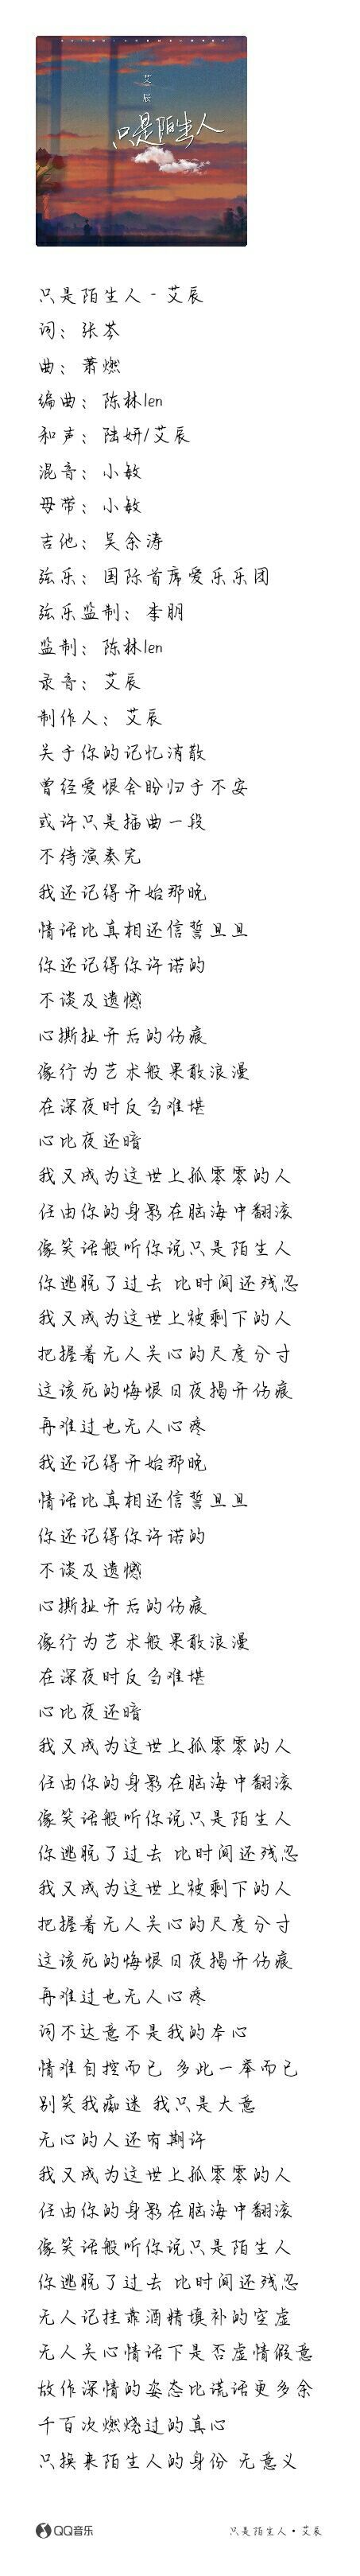 艾
辰
只是陌生人
只是陌生人 - 艾辰
词：张芩
曲：萧燃
编曲：陈林len
和声：陆妍/艾辰
混音：小敏
母带：小敏
吉他：吴余涛
弦乐：国际首席爱乐乐团
弦乐监制：李朋
监制：陈林len
录音：艾辰
制作人：艾辰
关于你的记忆消散
曾经爱恨含盼归于不安
或许只是插曲一段
不待演奏完
我还记得开始那晚
情话比真相还信誓旦旦
你还记得你许诺的
不谈及遗憾
心撕扯开后的伤痕
像行为艺术般果敢浪漫
在深夜时反刍难堪
心比夜还暗
我又成为这世上孤零零的人
任由你的身影在脑海中翻滚
像笑话般听你说只是陌生人
你逃脱了过去 比时间还残忍
我又成为这世上被剩下的人
把握着无人关心的尺度分寸
这该死的悔恨日夜揭开伤痕
再难过也无人心疼
我还记得开始那晚
情话比真相还信誓旦旦
你还记得你许诺的
不谈及遗憾
心撕扯开后的伤痕
像行为艺术般果敢浪漫
在深夜时反刍难堪
心比夜还暗
我又成为这世上孤零零的人
任由你的身影在脑海中翻滚
像笑话般听你说只是陌生人
你逃脱了过去 比时间还残忍
我又成为这世上被剩下的人
把握着无人关心的尺度分寸
这该死的悔恨日夜揭开伤痕
再难过也无人心疼
词不达意不是我的本心
情难自控而已 多此一举而已
别笑我痴迷 我只是大意
无心的人还有期许
我又成为这世上孤零零的人
任由你的身影在脑海中翻滚
像笑话般听你说只是陌生人
你逃脱了过去 比时间还残忍
无人记挂靠酒精填补的空虚
无人关心情话下是否虚情假意
故作深情的姿态比谎话更多余
千百次燃烧过的真心
只换来陌生人的身份 无意义
QQ音乐
只是陌生人·艾辰